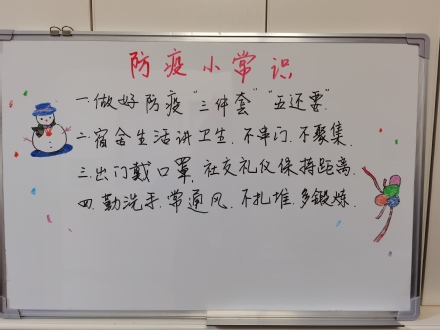 防疫小常识
一.做好防疫“三件套”“五还要”
二.宿舍生活讲卫生.不串门.不聚集.
三.出门戴口罩,社交礼仪保持距离.
四.勤洗手.常通风.不扎堆.多锻炼.